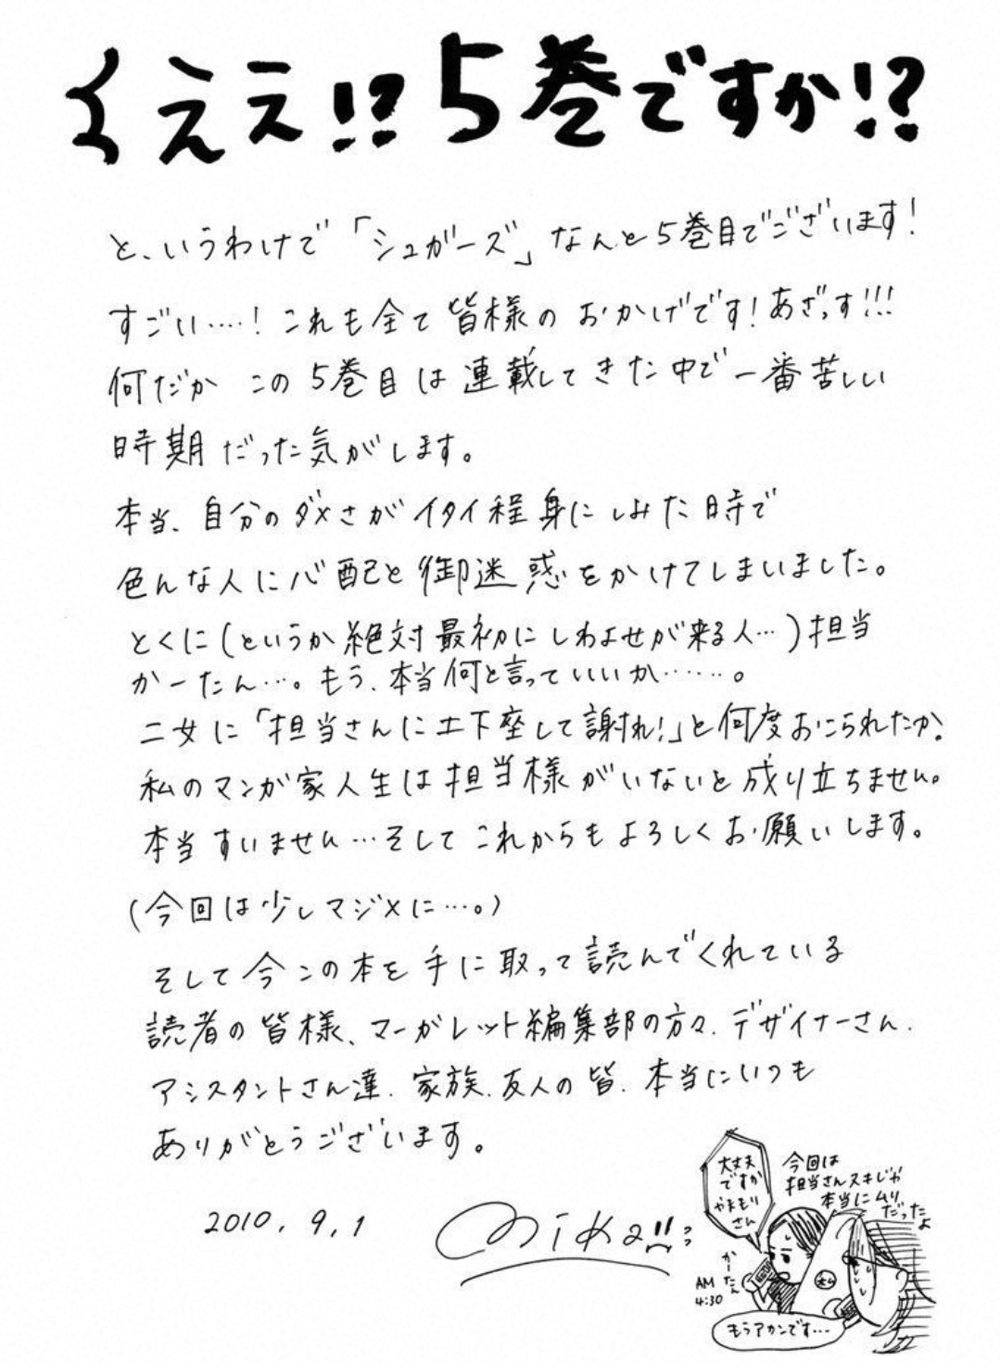 くえええ!? 5巻ですか!?
と、いうわけで「シュガーズ」なんと5巻目でございます!
すごい…!これも全て皆様のおかげです!あざっす!!!
何だか この5巻目は連載してきた中で一番苦しい
時期だった気がします。
本当、自分のダメさがイタイ程身にしみた時で
色んな人に心配と御迷惑をかけてしまいました。
とくに(というか絶対最初にしわよせが来る人…)担当
かーたん…。もう、本当何と言っていいか……。
二女に「担当さんに土下座して謝れ!」と何度おこられたか。
私のマンガ家人生は担当様がいないと成り立ちません。
本当すいません…そしてこれからもよろしくお願いします。
(今回は少しマジメに…。)
そして今この本を手に取って読んでくれている
読者の皆様、マーガレット編集部の方々、デザイナーさん、
アシスタントさん達、家族、友人の皆、本当にいつも
ありがとうございます。
2010.9.1
Mika
大丈夫
ですか
やまもり
さん
今回は
担当さんヌキじゃ
本当にムリ
だったよ
かーたん
AM
4:30
もうアカンです…